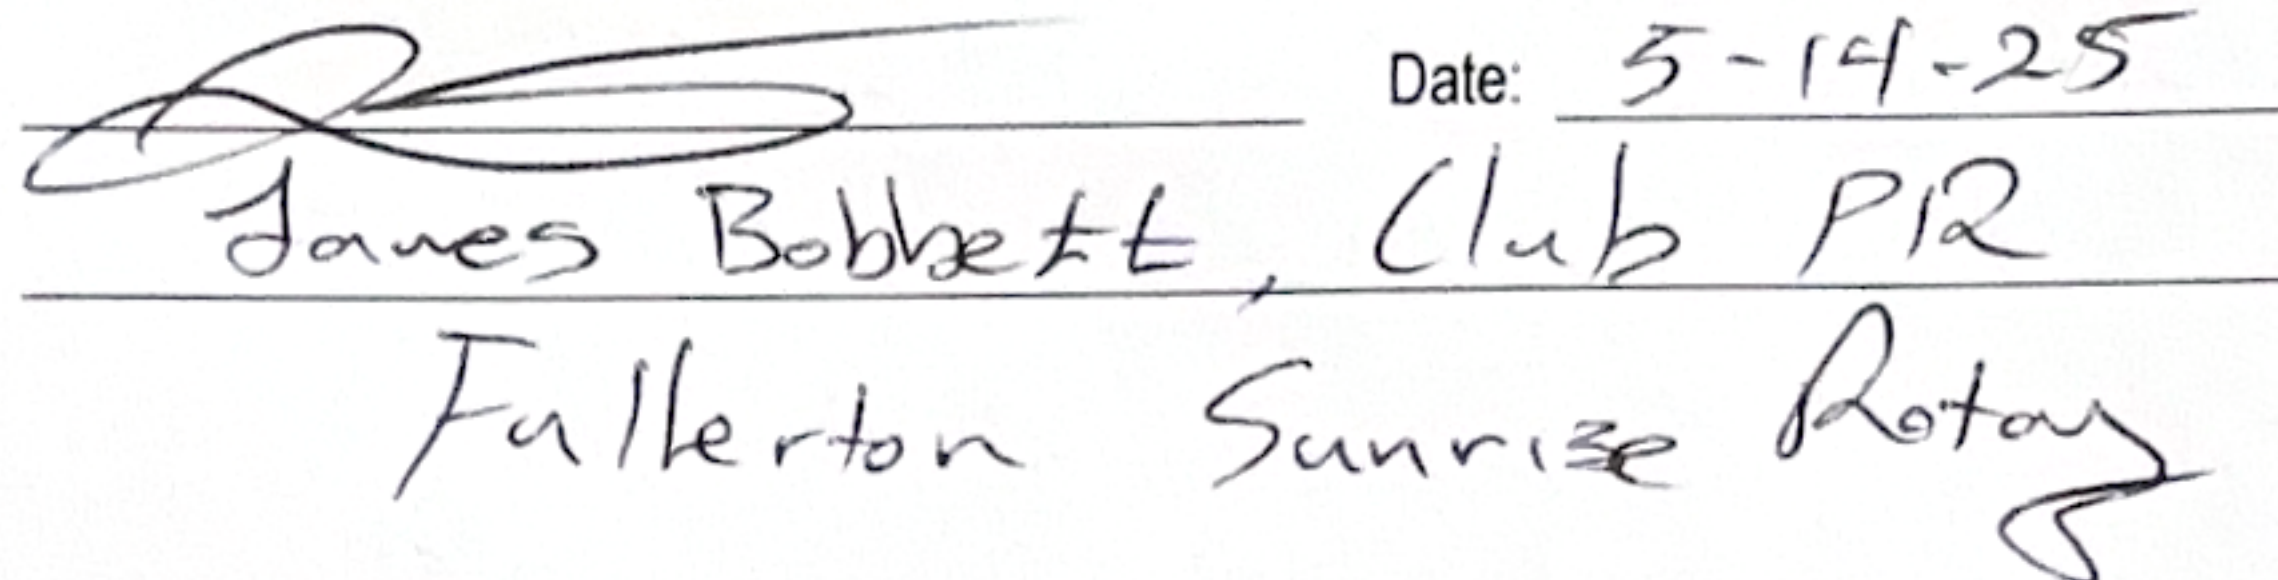 Date: 5-14-25
James Bobbett, Club PR
Fullerton Sunrise Rotary